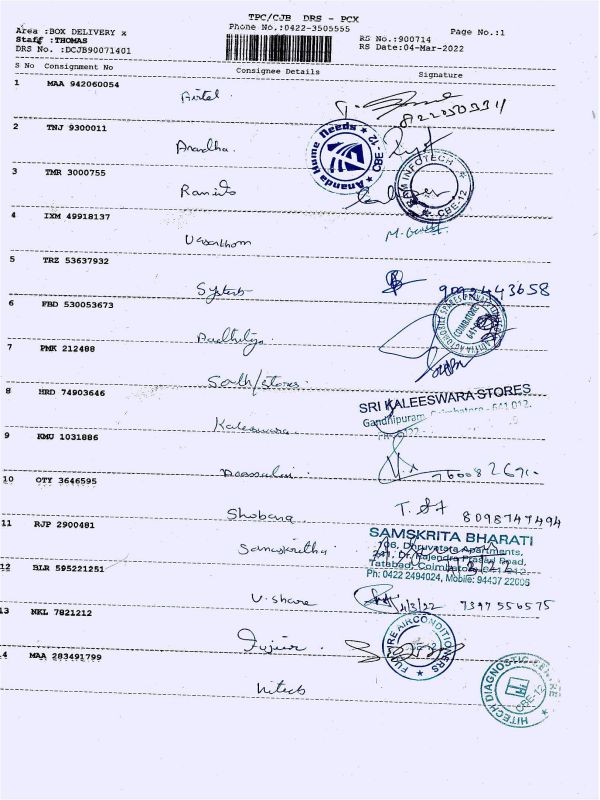 TPC/CJB DRS - PCX
Area :BOX DELIVERY x Phone No.:0422-3505555 Page No.:1
Staff :THOMAS RS No.:900714
DRS No. :DCJB90071401 RS Date:04-Mar-2022
S No Consignment No Consignee Details Signature
1 MAA 942060054
Airtel
2 TNJ 9300011
Ananda Home Needs CBE - 12
Aradha.
3 TMR 3000755
RAM INFOTECH CBE-12
4 IXM 49918137
M.
5 TRZ 53637932
Systeb
6 FBD 530053673
COIMBATORE
Aadhitya
7 PMK 212488
South/stores.
8 HRD 74903646
SRI KALEESWARA STORES
Gandhipuram, Coimbatore - 641 012.
Kaleeswara.
9 KMU 1031886
10 OTY 3646595
T. 8098747494
Shobana
11 RJP 2900481
SAMSKRITA BHARATI
Samskritha
106, Dhruvatara Apartments,
241, Dr. Rajendra Prasad Road,
Tatabad, Coimbatore 641 012.
12 BLR 595221251
Ph: 0422 2494024, Mobile: 94437 22006
V. share 4/3/22 7397556575
13 NKL 7821212
FUTURE AIRCONDITIONERS
14 MAA 283491799
Hitech
HITECH DIAGNOSTIC CENTRE CBE-12